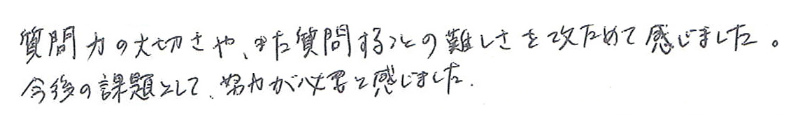 質問力の大切さや、また質問することの難しさを改ためて感じました。
今後の課題として、努力が必要と感じました.